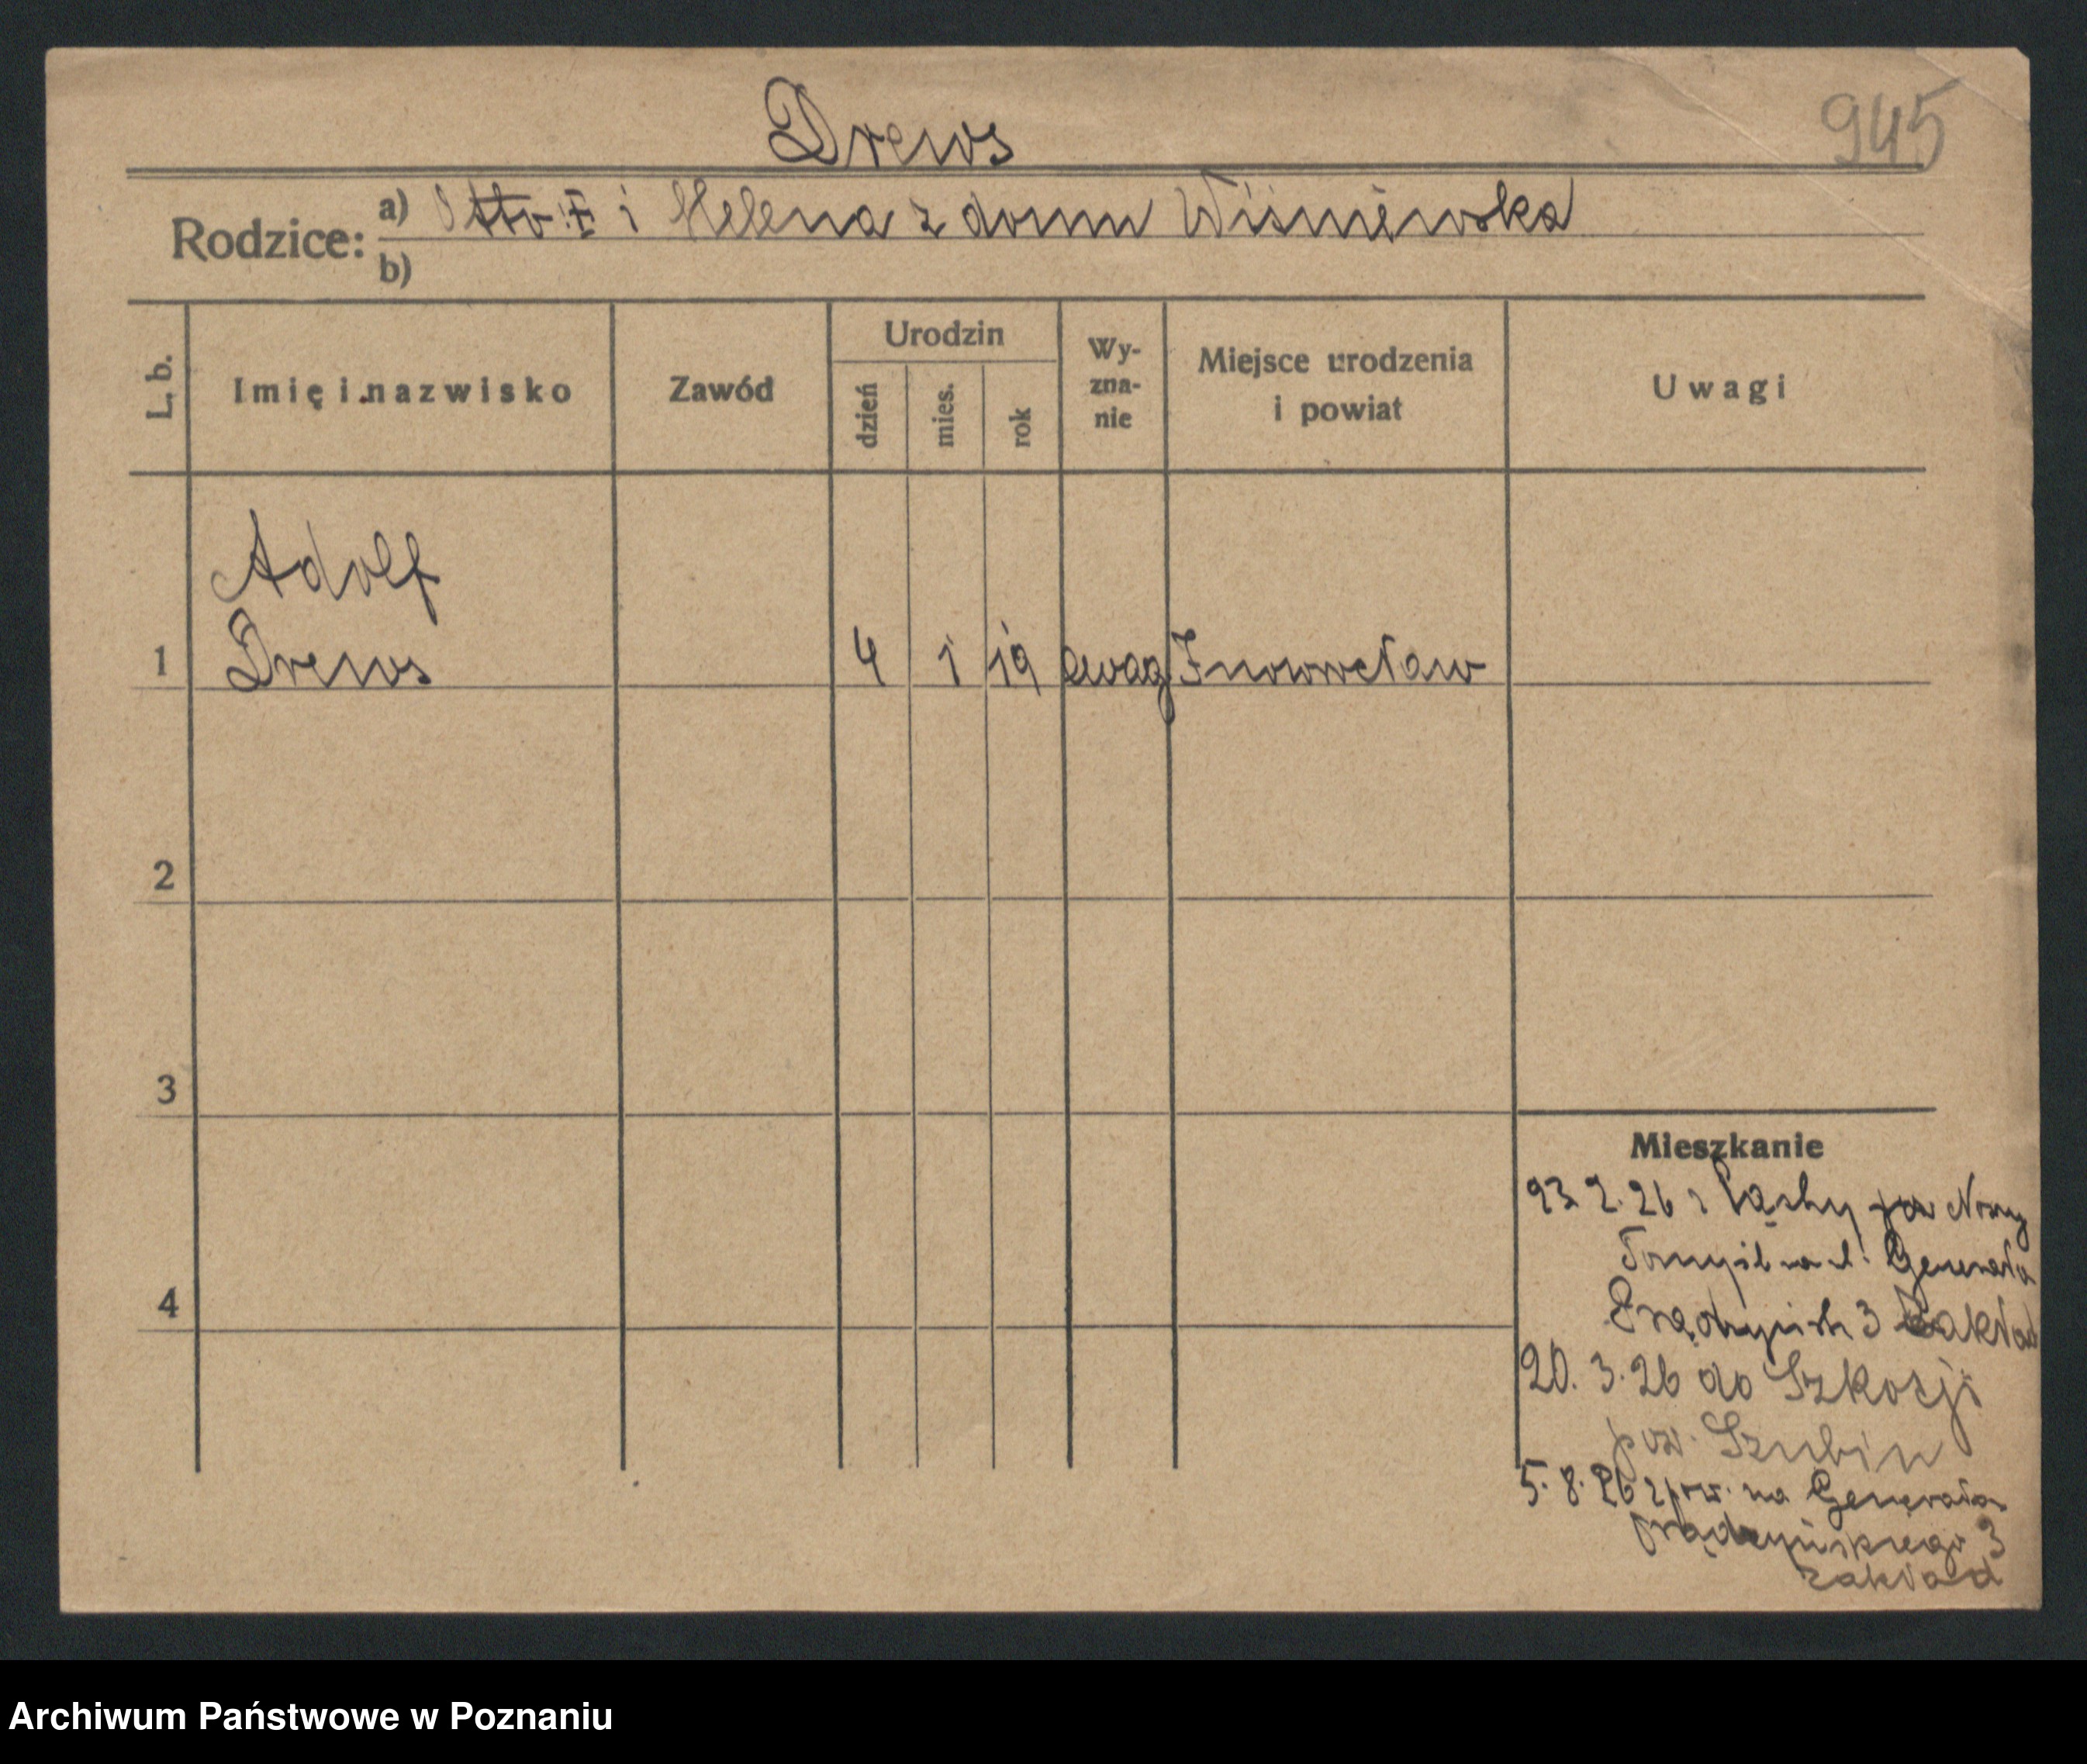 Drews
945
Rodzice: a) Otto I i Helena z domu Wiśniewska
b)
L. b. Imię i nazwisko Zawód Urodzin dzień mies. rok Wy-zna-nie Miejsce urodzenia i powiat Uwagi
Adolf
1 Drews 4 1 19 ewag Inowrocław
2
3
Mieszkanie
23 2. 26 z pow Nowy
Tomyśl na ul. Generała
4 3 Zakład
20. 3. 26 do Szkocji
pow. Szubin
5. 8. 26 z pow. na Generała
Prądzyńskiego 3
zakład
Archiwum Państwowe w Poznaniu